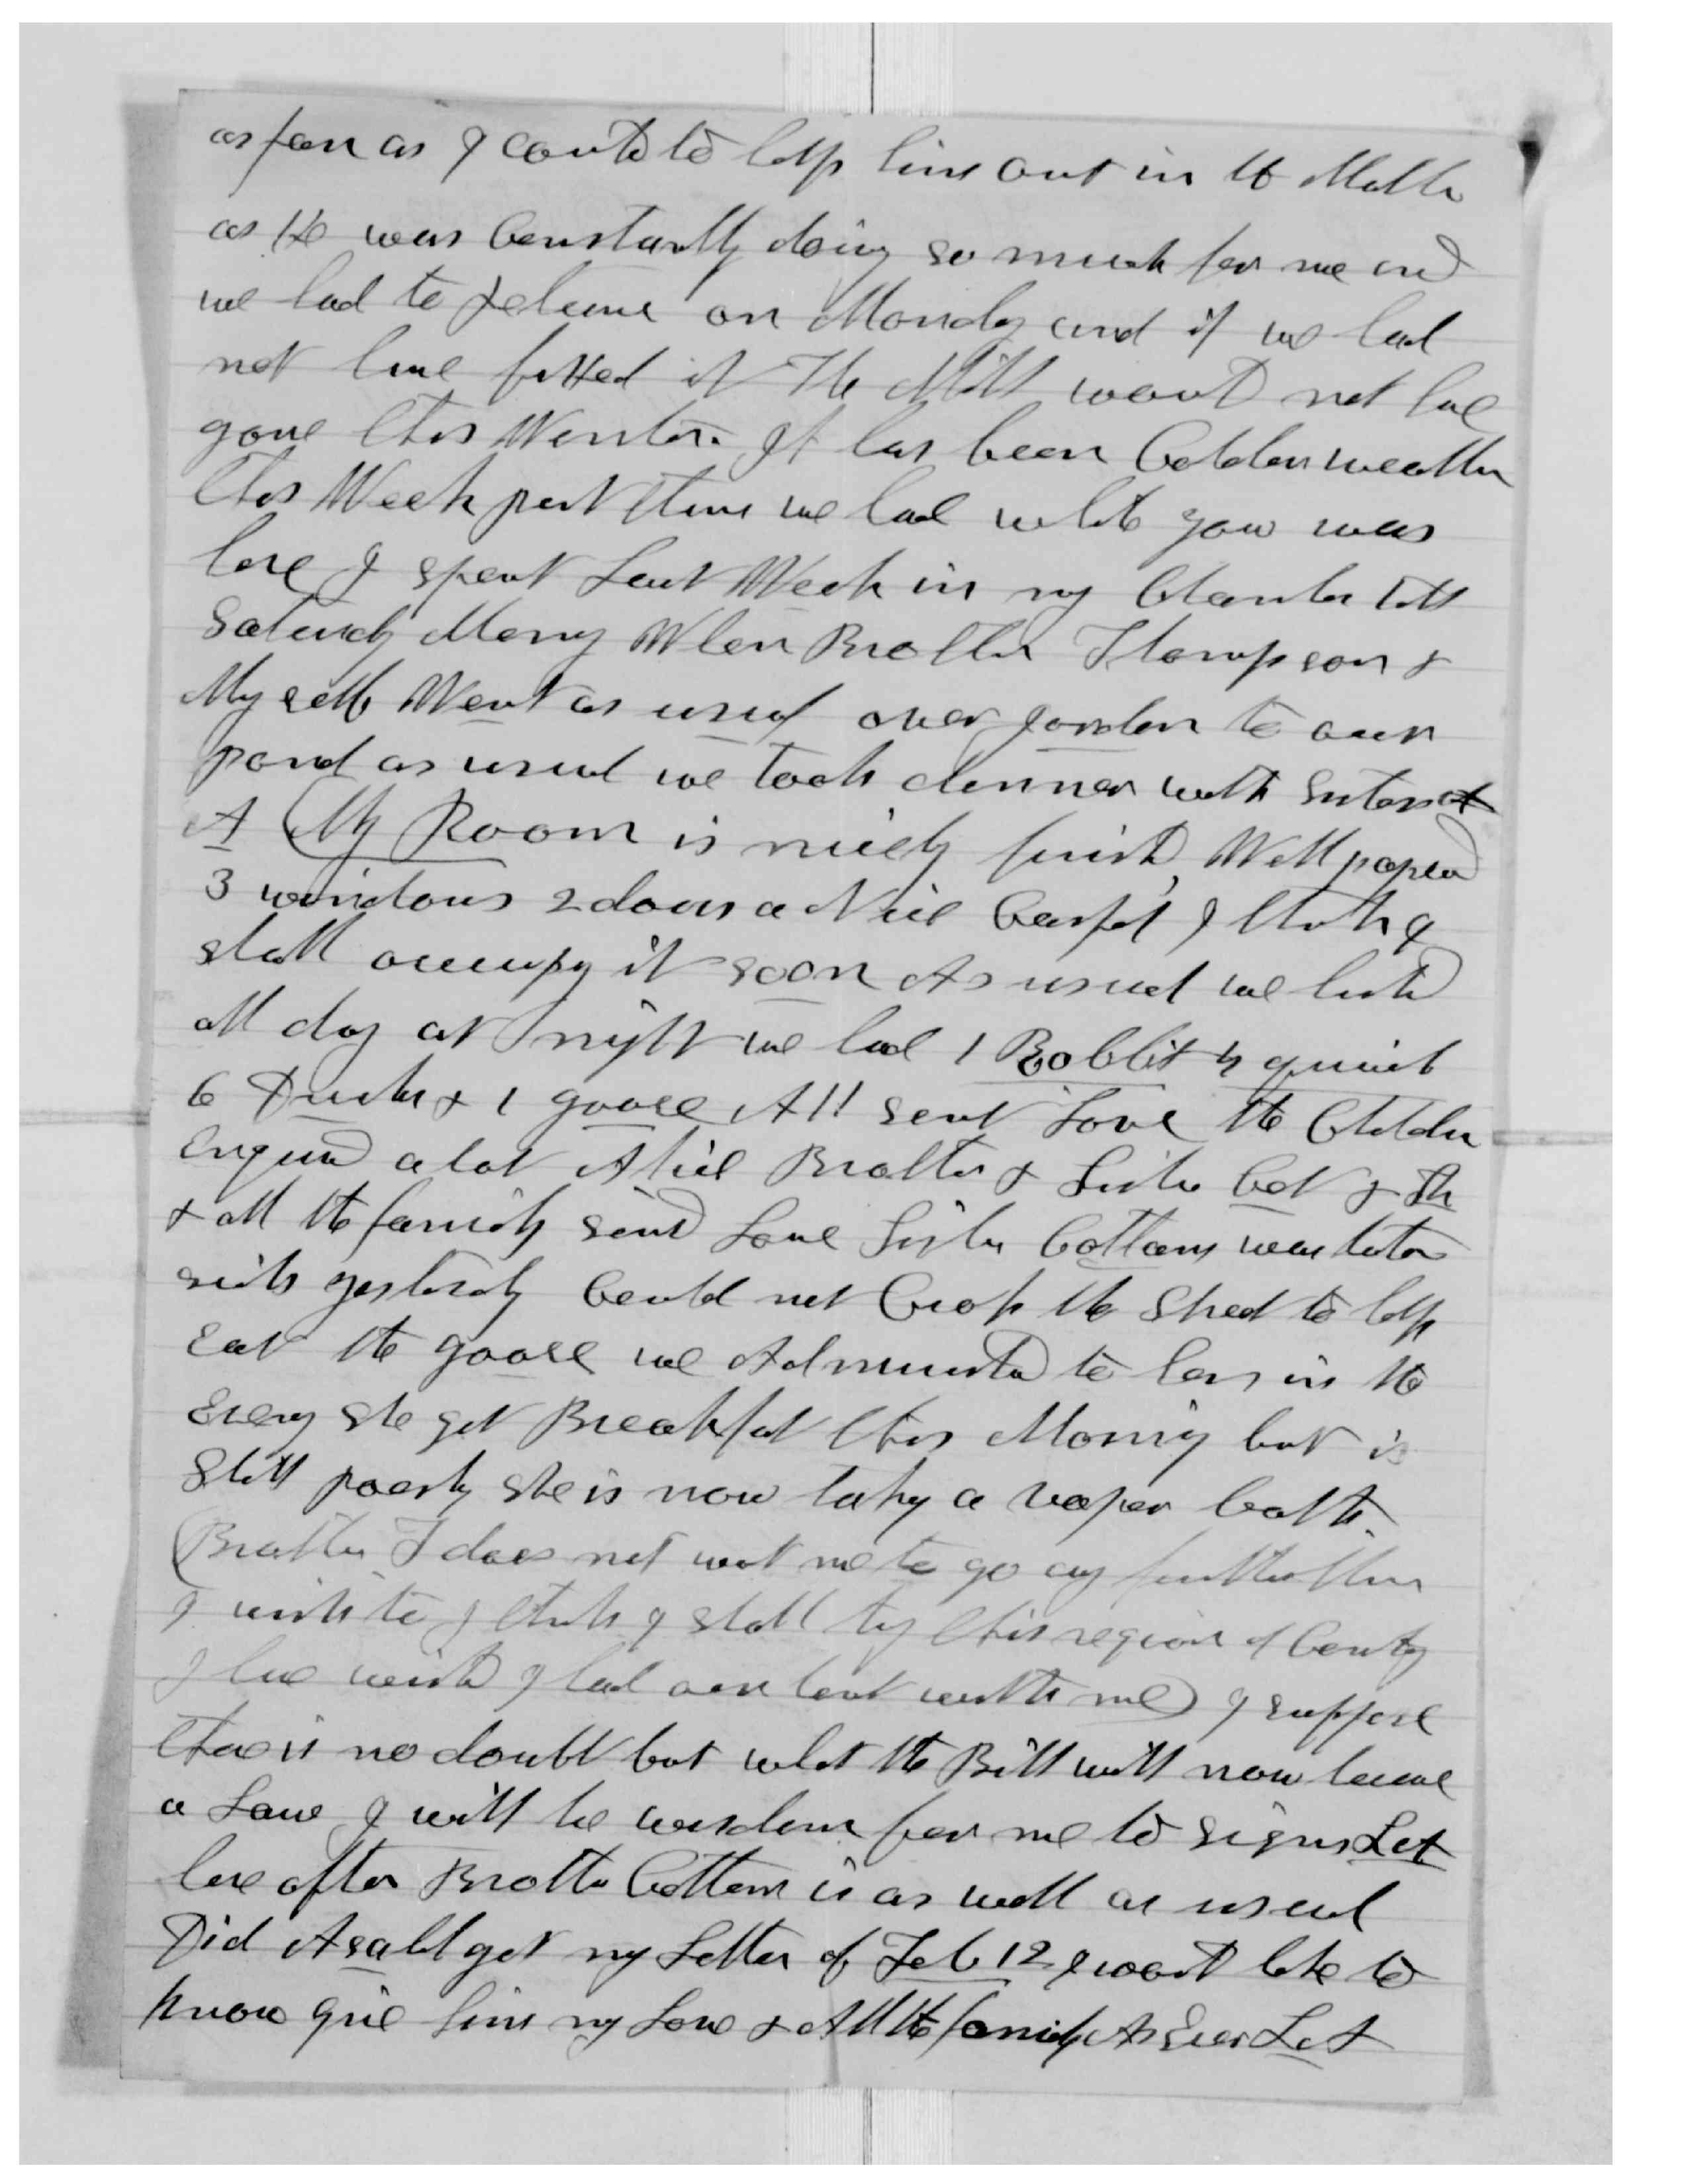 as far as I could to help him out in the Matter
as He was Constantly doing so much for me and
we had to return on Monday and if we had
not have fixed it The Mill would not have
gone this Winter. It has been Colder weather
this Week past than we had while you was
here I spent Last Week in my Chamber till
Saturdy Morng When Brother Thompson &
My self Went as usual over Jordan to our
pond as usual we took dinner with Sister
A (My Room is nicely finishd, Well paperd
3 windows 2 doors a Nice Carpet I think I
shall occupy it soon As usual we huntd
all day at night we had 1 Rabbit 4 quails
6 Ducks & 1 goose All sent Love the Children
Enquird a lot Alice Brother & Sister Cot & Th
& all the family send Love Sister Cottam was taken
sick yesterdy Could not Cross the Street to help
Eat the goose we Administd to her in the
Eveng she got Breakfast this Morning but is
Still poorly she is now takng a vaper bath.
(Brother T does not want me to go any further than
I wish to I think I shall try this region of Country
I have wishd I had our boat with me) I suppose
there is no doubt but what the Bill will now become
a Law I will be wisdom for me to sign Lot
here after Brother Cottam is as well as usual
Did Asahel get my Letter of Feb 12 I would like to
know give him my Love & All the family As Ever Lot